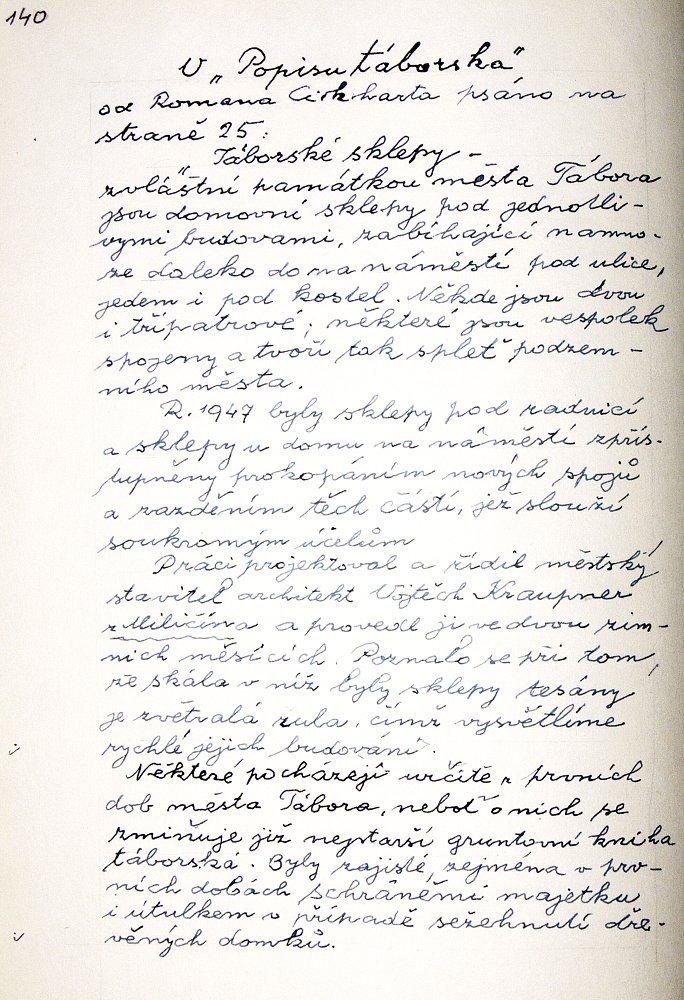 140
V „Popisu táborska"
od Romana Cikharta psáno na
straně 25:
Táborské sklepy -
zvláštní památkou města Tábora
jsou domovní sklepy pod jednotli-
vými budovami, zabíhající namno-
ze daleko do na náměstí pod ulice,
jedem i pod kostel. Někde jsou dvou
i třípatrové; některé jsou vespolek
spojeny a tvoří tak spleť podzem-
ního města.
R. 1947 byly sklepy pod radnicí
a sklepy u domu na náměstí zpřís-
tupněny prokopáním nových spojů
a zazděním těch částí, jež slouží
soukromým účelům
Práci projektoval a řídil městský
stavitel architekt Vojtěch Kraupner
z Miličína a provedl ji ve dvou zim-
ních měsících. Poznalo se při tom,
že skála v níž byly sklepy tesány
je zvětvalá žula, čímž vysvětlíme
rychlé jejich budování.
Některé pocházejí určitě z prvních
dob města Tábora, neboť o nich se
zmiňuje již nejstarší gruntovní kniha
táborská. Byly zajisté, zejména v prv-
ních dobách schráněmi majetku
i útulkem v případě sežehnutí dře-
věných domků.